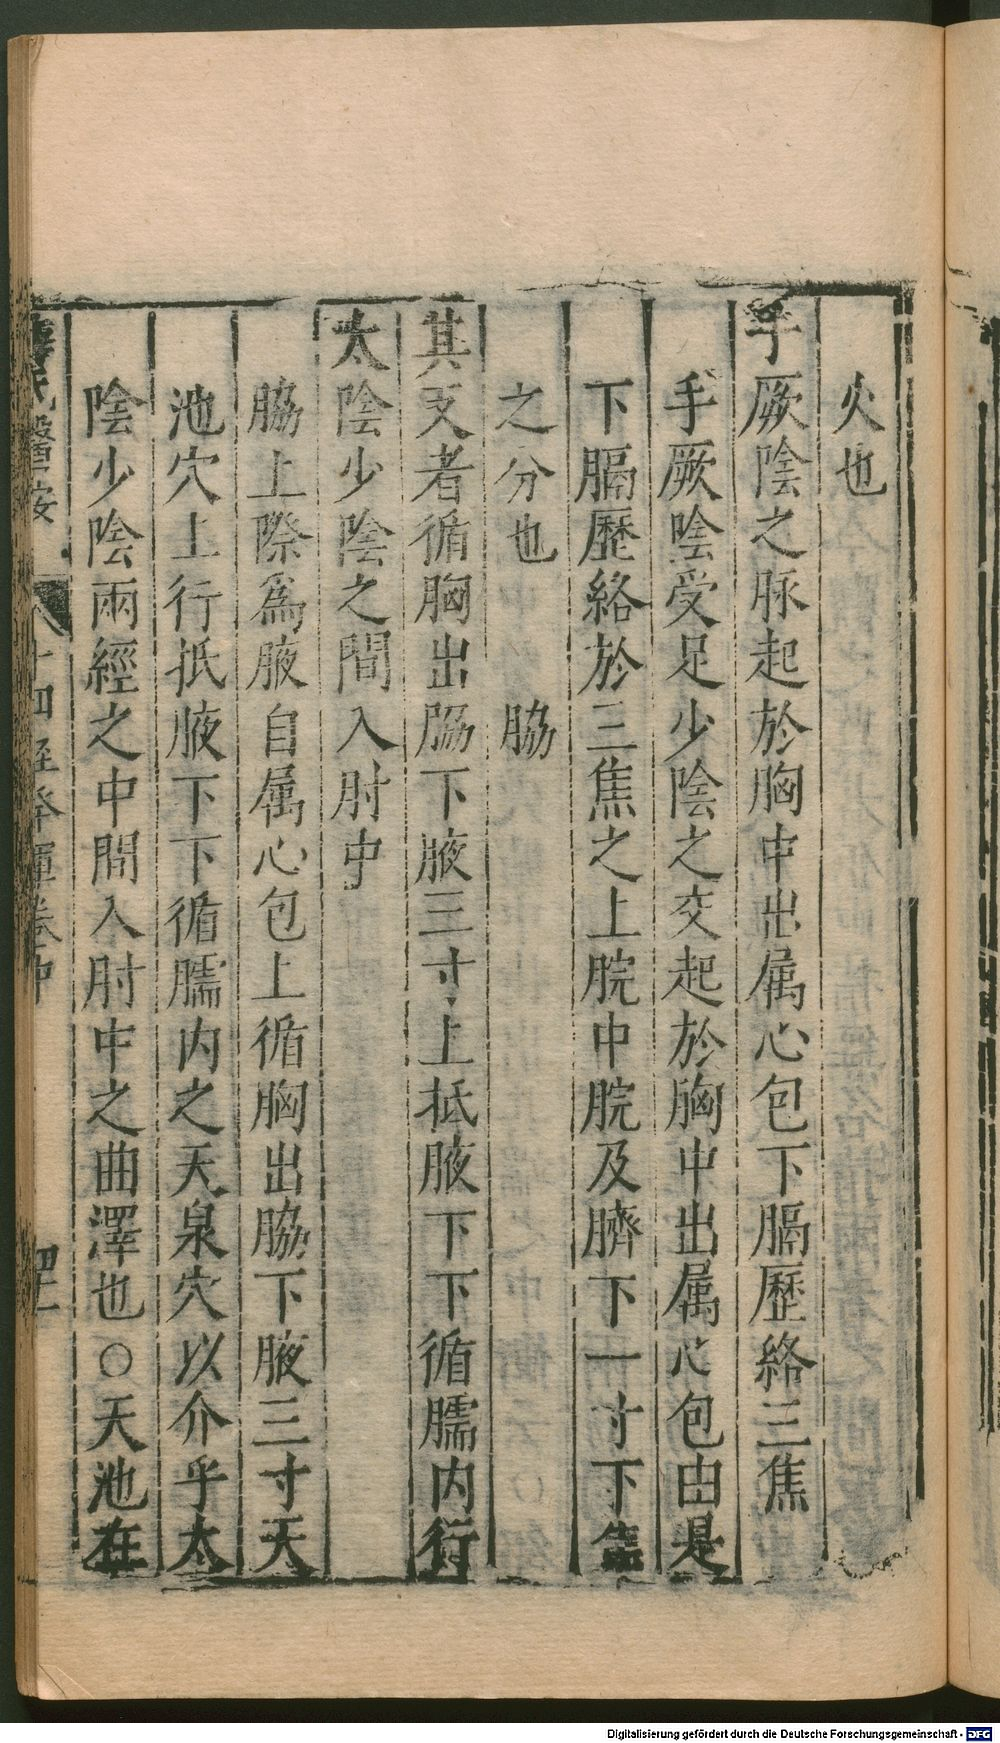 火也
手厥陰之脉起於胸中出属心包下膈歷絡三焦
手厥陰受足少陰之交起於胸中出属心包由是
下膈歷絡於三焦之上脘中脘及臍下一寸下焦
之分也 脇
其支者循胸出脇下腋三寸上抵腋下下循臑内行
太陰少陰之間入肘中
脇上際爲腋自属心包上循胸出脇下腋三寸天
池穴上行抵腋下下循臑内之天泉穴以介乎太
陰少陰兩經之中間入肘中之曲澤也○天池在
薛氏醫按 十四經發揮卷中
Digitalisierung gefördert durch die Deutsche Forschungsgemeinschaft - DFG